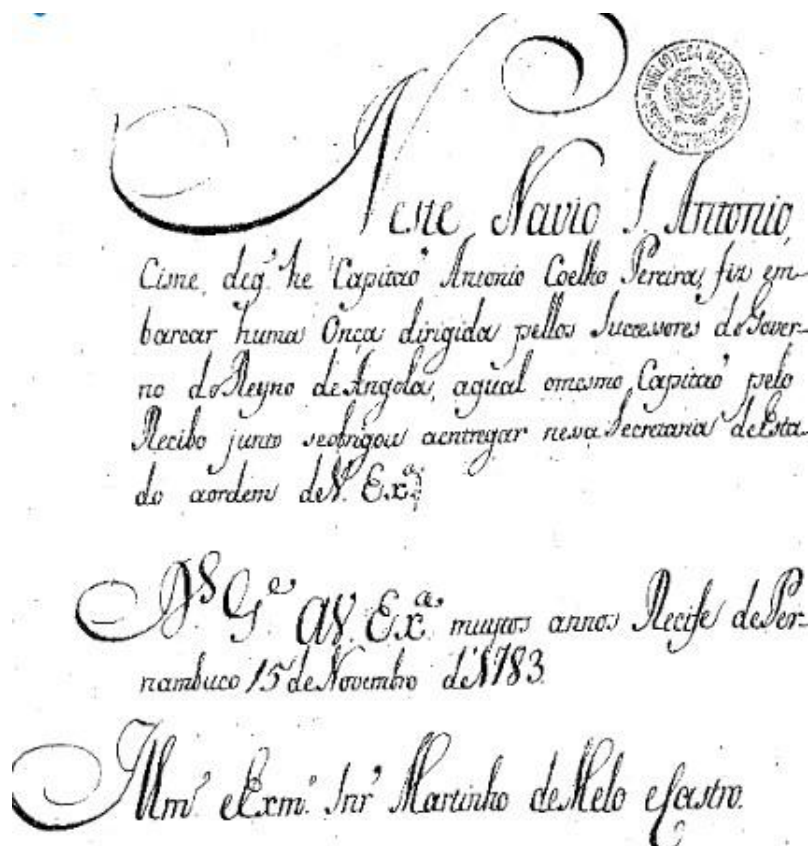 Neste Navio S. Antonio,
Cisne, deq.' he Capitaõ Antonio Coelho Pereira, fiz em-
barcar huma Onça dirigida pellos Successores do Gover-
no do Reyno de Angola, aqual omesmo Capitaõ pelo
Recibo junto seobrigou aentregar nessa Secretaria de Esta-
do aordem de V. Ex.ª
D.s G.e a V. Ex.ª muytos annos Recife de Per-
nambuco 15 de Novembro de 1783.
Illm.º eExm.º Snr.' Martinho de Melo eCastro.
BIBLIOTECA NACIONAL